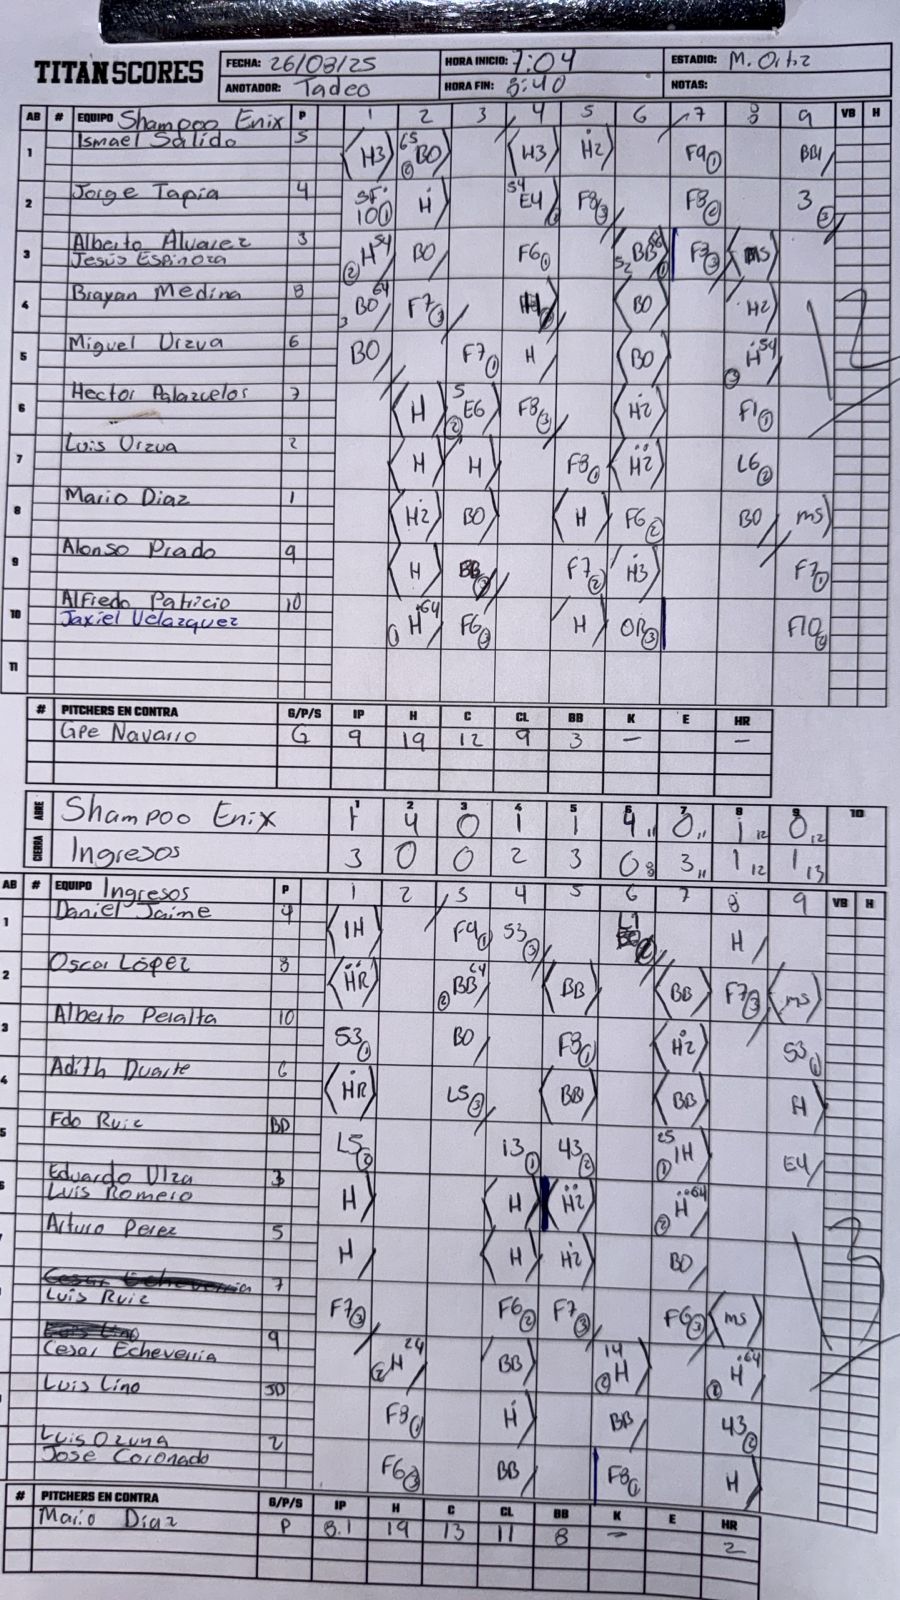 TITAN SCORES
FECHA: 26/08/25 HORA INICIO: 7:04 ESTADIO: M. Ortiz
ANOTADOR: Tadeo HORA FIN: 8:40 NOTAS:
AB # EQUIPO Shampoo Enix P 1 2 3 4 5 6 7 8 9 VB H
1 Ismael Salido 5 H3 65 BO H3 H2 F9 1 BB
2 Jorge Tapia 4 SF 10 1 H 54 E4 F8 3 F8 2 3 3
3 Alberto Alvarez 3 2 H 54 BO F6 1 52 BB 1 F3 3 MS
Jesús Espinoza
4 Brayan Medina 8 BO 64 3 F7 3 BO H2
5 Miguel Urzua 6 BO F7 1 H BO H 54
6 Hector Palazuelos 7 H 5 E6 2 F8 3 H2 F1 1
7 Luis Urzua 2 H H F8 1 H2 L6 2
8 Mario Diaz 1 H2 BO H F6 2 BO MS
9 Alonso Prado 9 H BB F7 2 H3 F7 1
10 Alfredo Patricio 10 1 H 64 F6 3 H OR 3 F10 2
Jaxiel Velazquez
11
# PITCHERS EN CONTRA G/P/S IP H C CL BB K E HR
Gpe Navarro G 9 19 12 9 3 – –
1 2 3 4 5 6 7 8 9 10
ABRE Shampoo Enix 1 4 0 1 1 4 11 0 11 1 12 0 12
CIERRA Ingresos 3 0 0 2 3 0 8 3 11 1 12 1 13
AB # EQUIPO Ingresos P 1 2 3 4 5 6 7 8 9 VB H
1 Daniel Jaime 4 1H F9 1 53 3 H
2 Oscar López 8 HR 2 BB 64 BB BB F7 3 MS
3 Alberto Peralta 10 53 1 BO F8 1 H2 53 1
4 Adith Duarte 6 HR L5 3 BB BB H
5 Fdo Ruiz BD L5 2 13 1 43 2 25 1 1H E4
Eduardo Ulza 3 H H H2 2 H 64
Luis Romero
Arturo Perez 5 H H H2 BO
Cesar Echeverria 7 F7 3 F6 2 F7 3 F6 3 MS
Luis Ruiz
Luis Lino 9 2 H 24 BB 14 H 2 H 64
Cesar Echeverria
Luis Lino SD F8 1 H BB 43 2
Luis Ozuna 2 F6 3 BB F8 1 H
Jose Coronado
# PITCHERS EN CONTRA G/P/S IP H C CL BB K E HR
Mario Diaz P 8.1 19 13 11 8 – 2